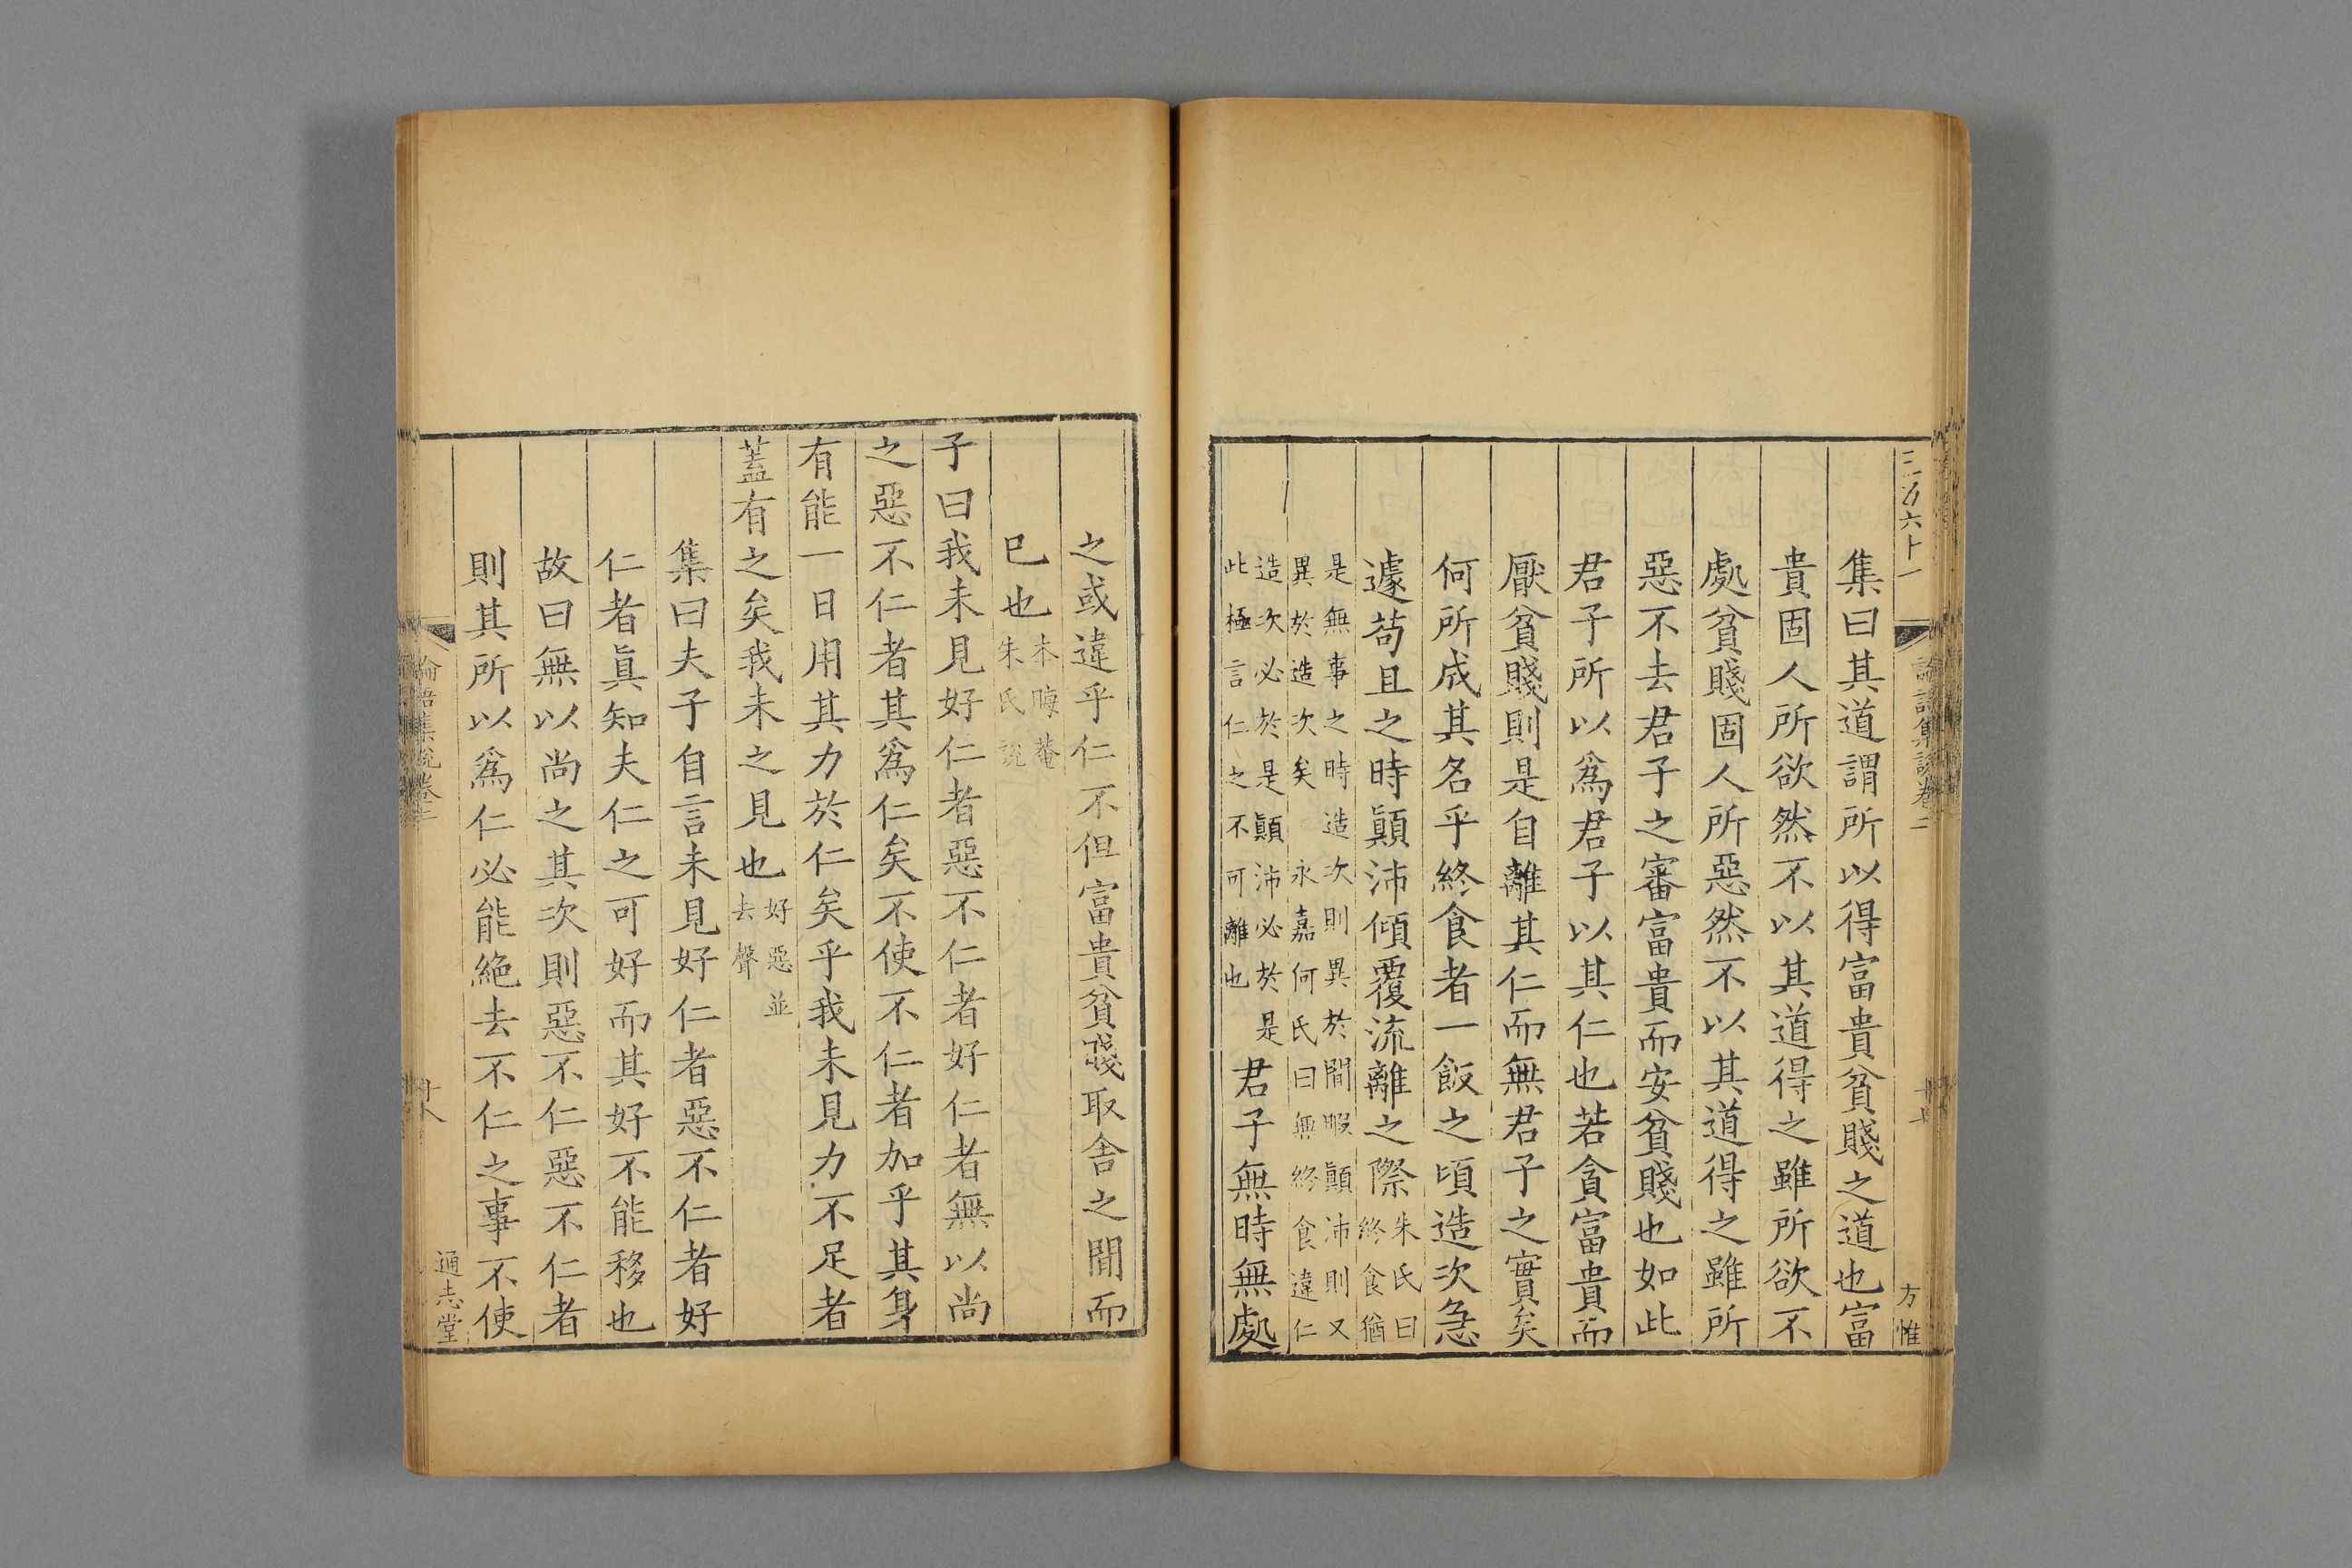 三百六十一
論語集說卷二
十七
方惟
集曰其道謂所以得富貴貧賤之道也富
貴固人所欲然不以其道得之雖所欲不
處貧賤固人所惡然不以其道得之雖所
惡不去君子之審富貴而安貧賤也如此
君子所以爲君子以其仁也若貪富貴而
厭貧賤則是自離其仁而無君子之實矣
何所成其名乎終食者一飯之頃造次急
遽苟且之時顚沛傾覆流離之際朱氏曰終食猶
是無事之時造次則異於閒暇顚沛則又
異於造次矣 永嘉何氏曰無終食違仁
造次必於是顚沛必於是
此極言仁之不可離也君子無時無處
之或違乎仁不但富貴貧賤取舍之閒而
已也本晦菴朱氏說
子曰我未見好仁者惡不仁者好仁者無以尚
之惡不仁者其爲仁矣不使不仁者加乎其身
有能一日用其力於仁矣乎我未見力不足者
蓋有之矣我未之見也好惡並去聲
集曰夫子自言未見好仁者惡不仁者好
仁者眞知夫仁之可好而其好不能移也
故曰無以尚之其次則惡不仁惡不仁者
則其所以爲仁必能絶去不仁之事不使
論語集說卷二
十八
通志堂